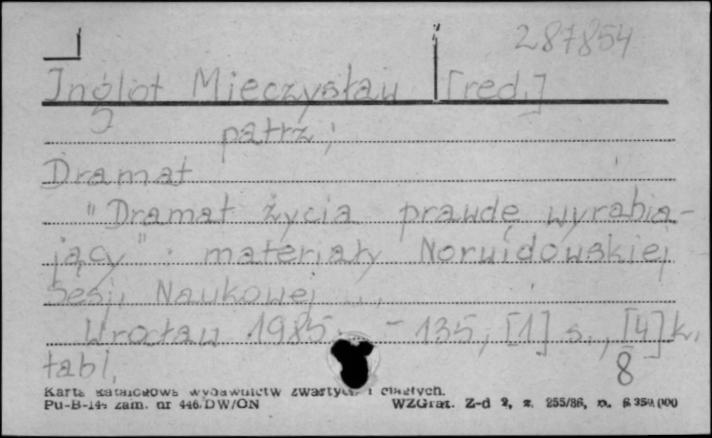 287854
Inglot Mieczysław [red.]
patrz:
Dramat
"Dramat życia prawdę wyrabia-
jący" : materiały Norwidowskiej
Sesji Naukowej ...
Wrocław 1985. - 135, [1] s., [4] k.
tabl.
8
Karta katalogowa wydawnictw zwartych i ciągłych.
Pu-B-14, zam. nr 446/DW/ON WZGraf. Z-d 2, z. 255/86, n.